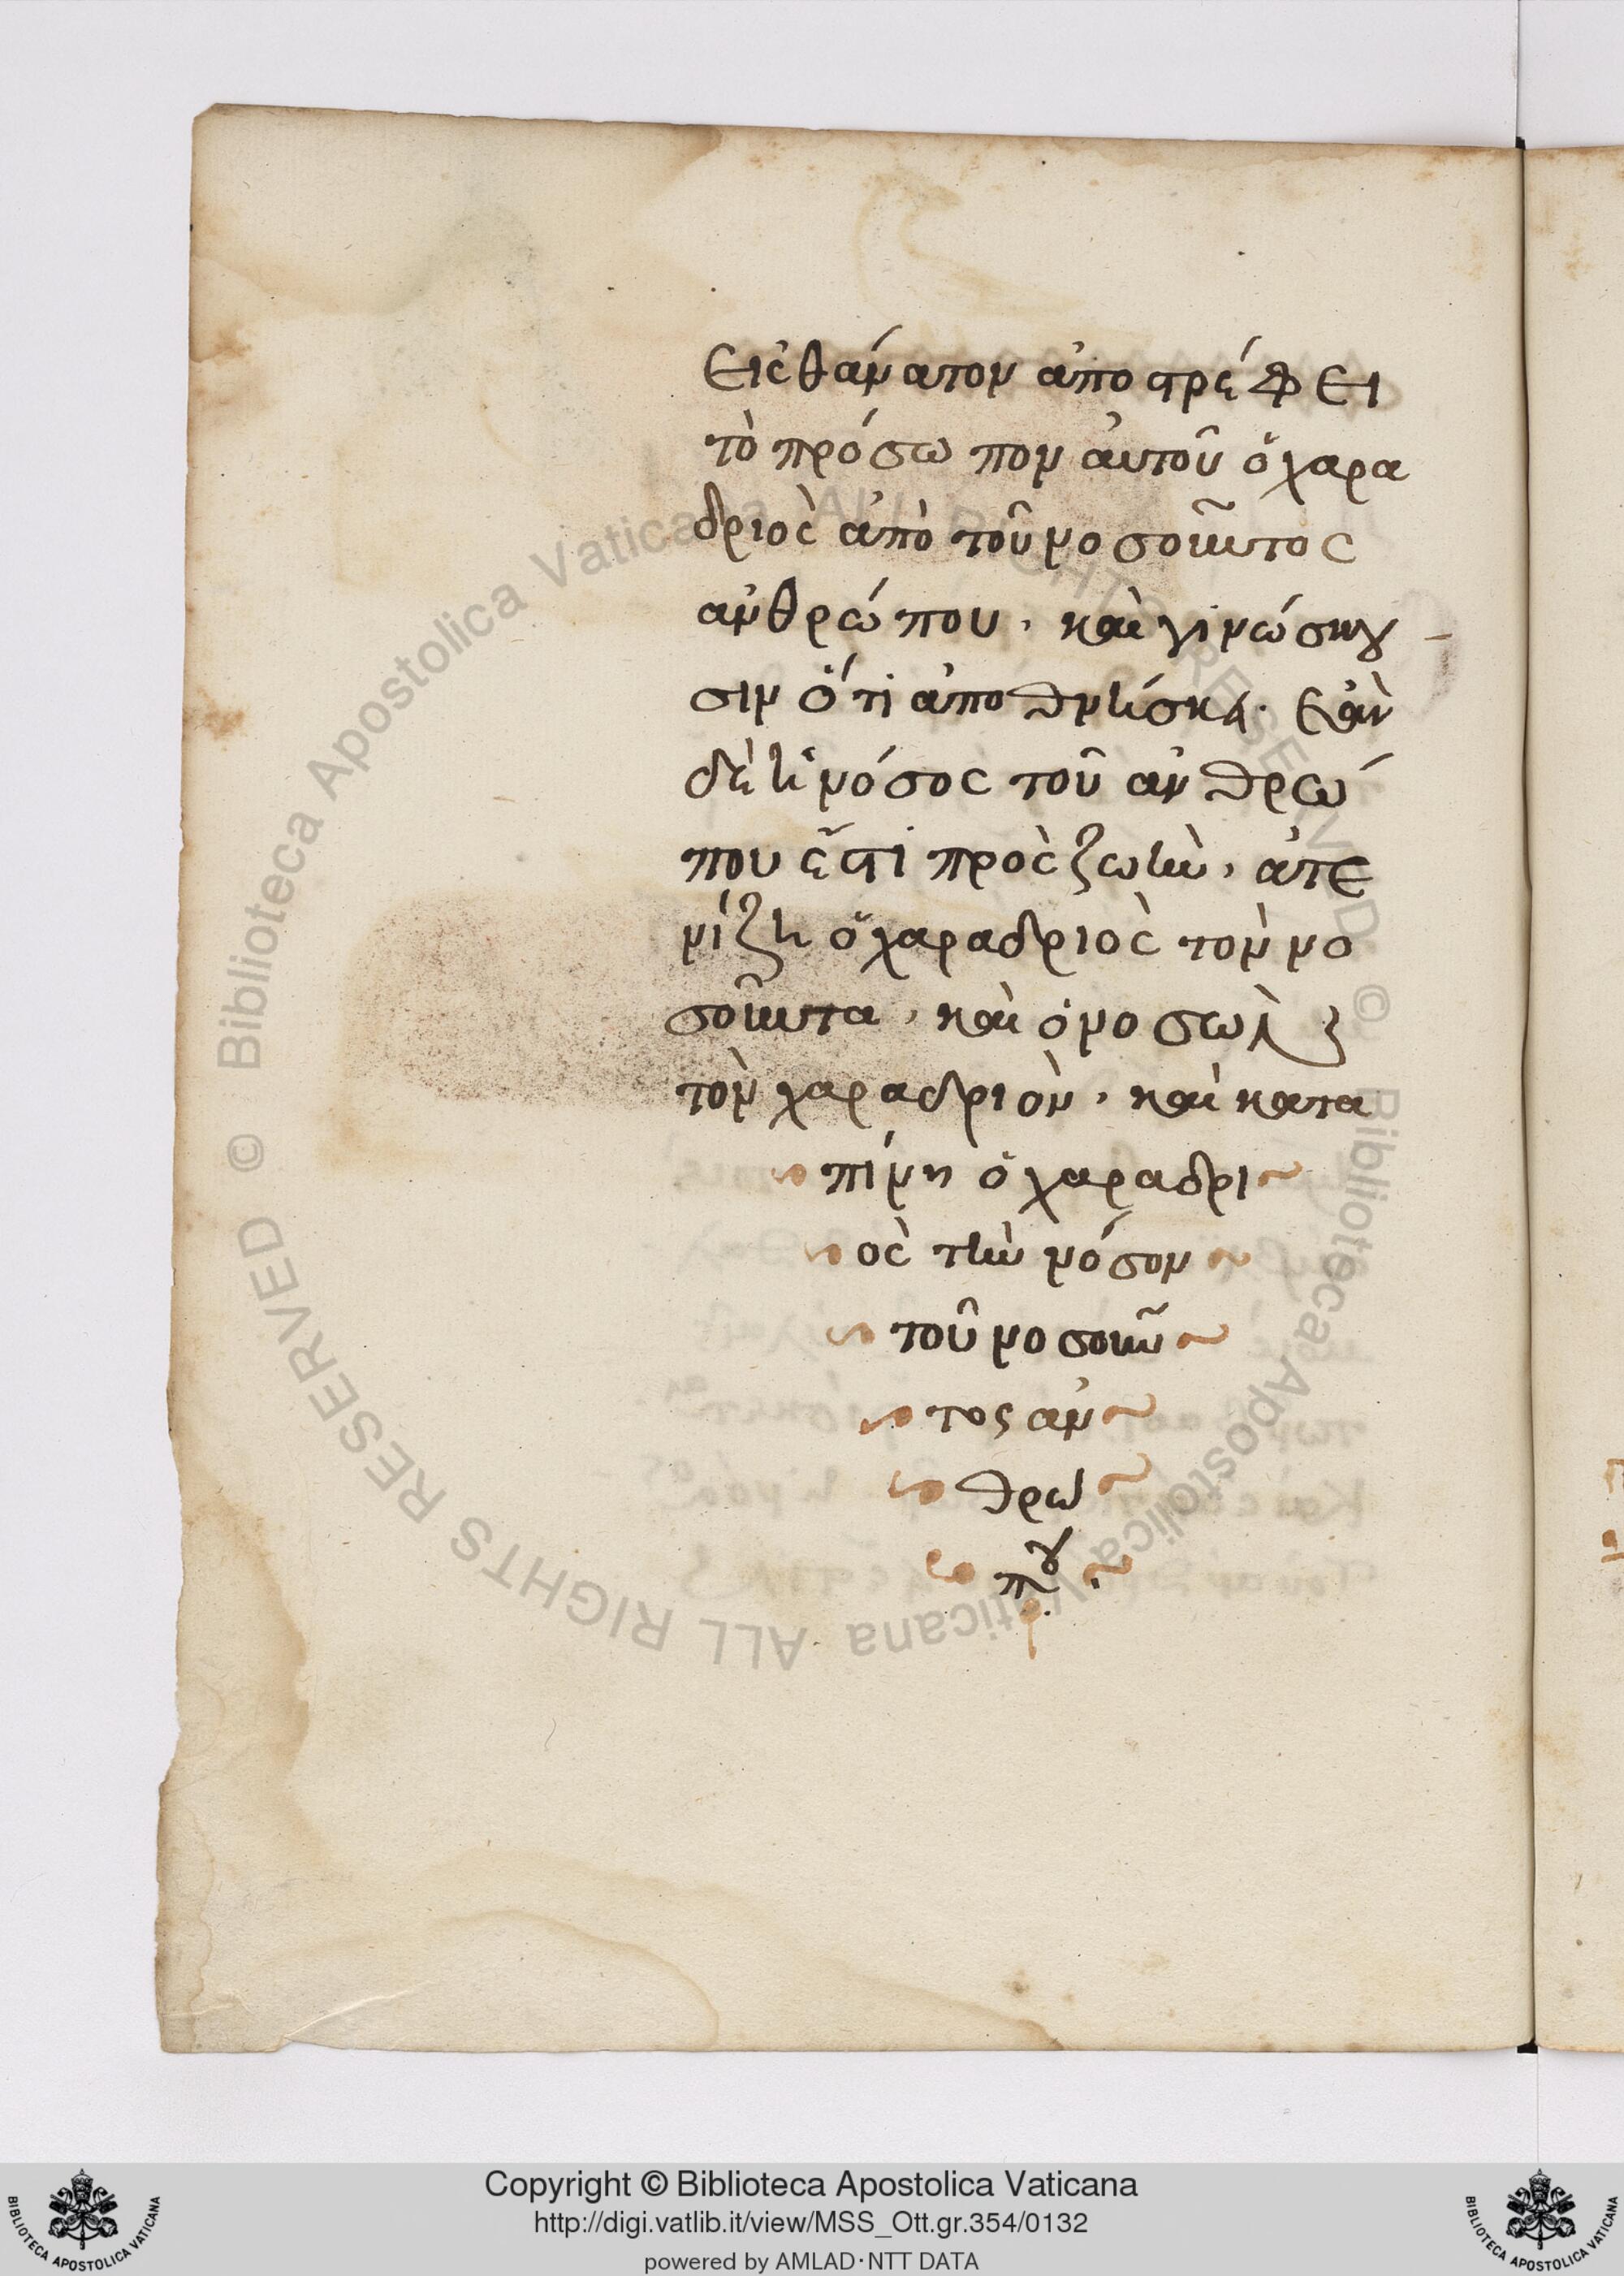 εἰς θάνατον ἀποστρέφει
τὸ πρόσωπον αὐτοῦ ὁ χαρα
δριὸς ἀπὸ τοῦ νοσοῦντος
ἀνθρώπου, καὶ γινώσκου
σιν ὅτι ἀποθνήσκει. Ἐὰν
δὲ ἡ νόσος τοῦ ἀνθρώ
που ἔστι πρὸς ζωὴν, ἀτε
νίζη ὁ χαραδριὸς τὸν νο
σοῦντα, καὶ ὁ νοσῶν
τὸν χαραδριὸν, καὶ κατα
πίνη ὁ χαραδρι
ὸς τὴν νόσον
τοῦ νοσοῦν
τος ἀν
θρω
που.
Biblioteca Apostolica Vaticana ALL RIGHTS RESERVED © Biblioteca Apostolica Vaticana ALL RIGHTS RESERVED ©
Copyright © Biblioteca Apostolica Vaticana
http://digi.vatlib.it/view/MSS_Ott.gr.354/0132
powered by AMLAD·NTT DATA
BIBLIOTECA APOSTOLICA VATICANA
BIBLIOTECA APOSTOLICA VATICANA